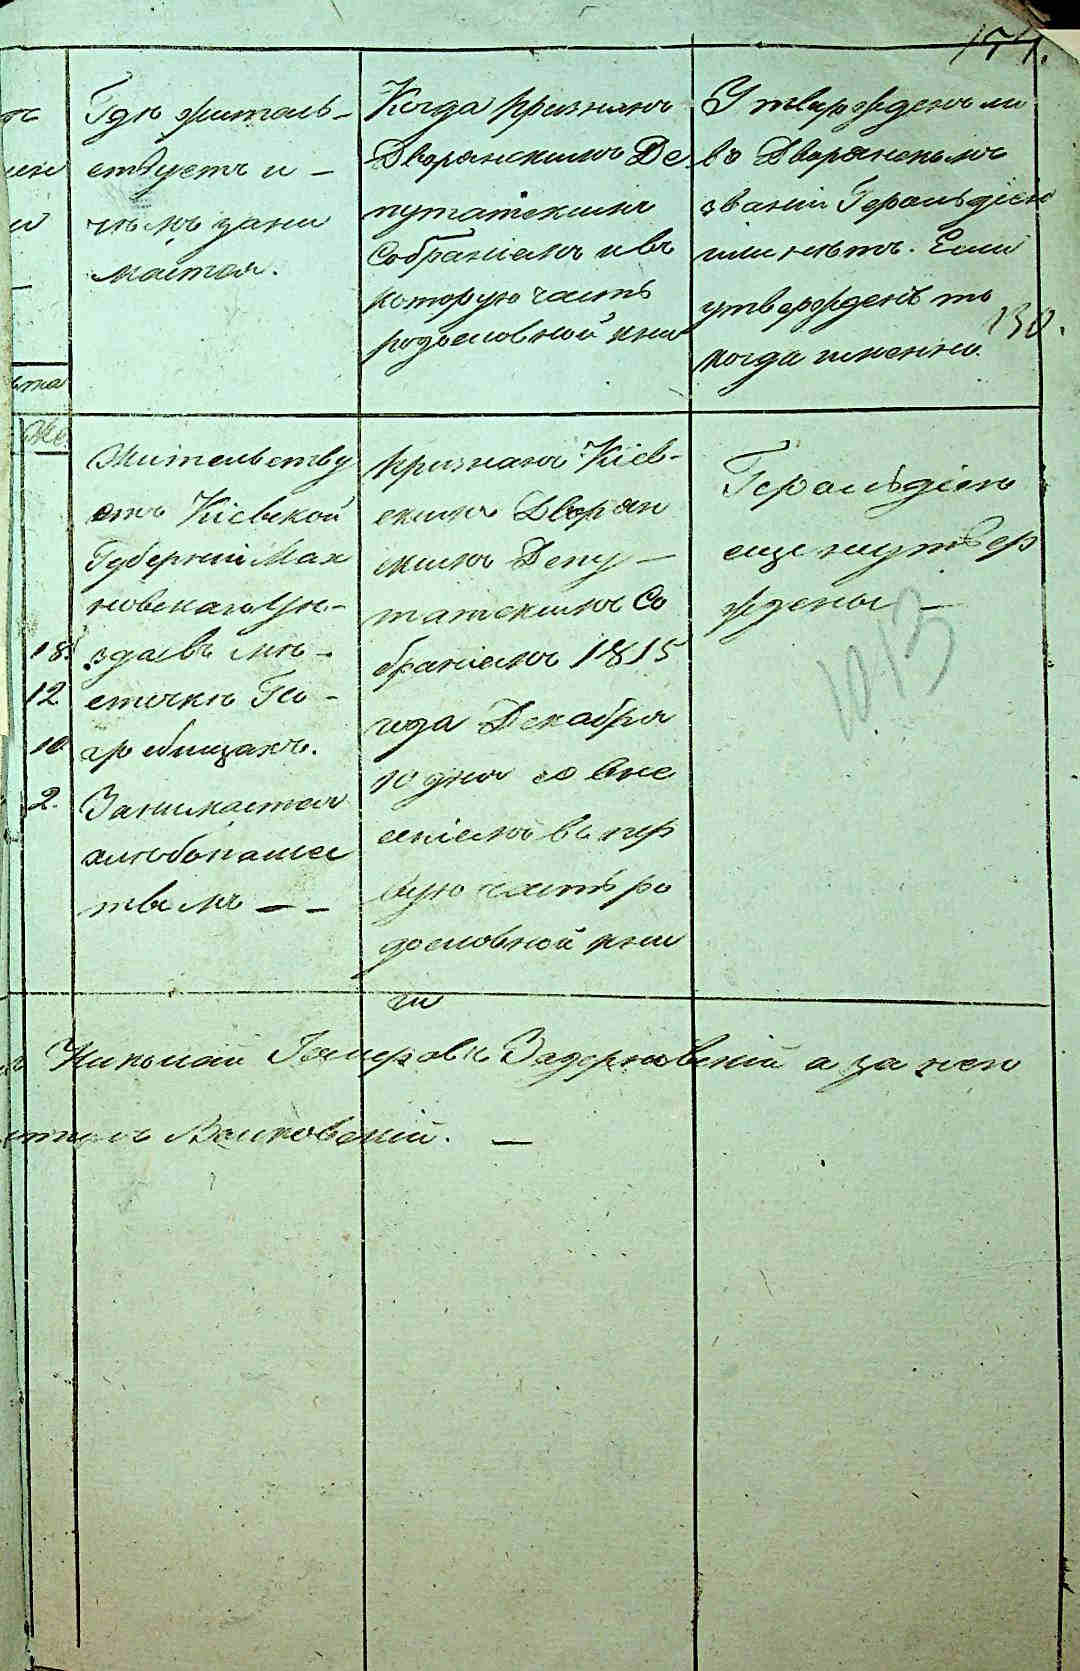 174.
Гдѣ житель-
ствуетъ и -
чѣмъ зани
мается.
Когда признанъ
Дворянскимъ Де
путатскимъ
Собраніемъ и въ
которую часть
родословной кни
Утвержденъ ли
въ Дворянскомъ
званіи Герольдіею
или нѣтъ. Если
утвержденъ то
когда именно.
130.
Же.
18.
12
10
2.
Жительству
етъ Кіевской
Губерніи Мах
новскаго Уѣ-
зда въ мѣ-
стечкѣ По-
гребищахъ.
Занимается
хлѣбопашес
твомъ - -
признанъ Кіев-
скимъ Дворян
скимъ Депу-
татскимъ Со
браніемъ 1815
года Декабря
10 дня со вне
сеніемъ въ пер
вую часть ро
дословной кни
ги
Герольдіею
еще неутвер
ждены -
Николай Задерновскій а за него
Валковскій. -